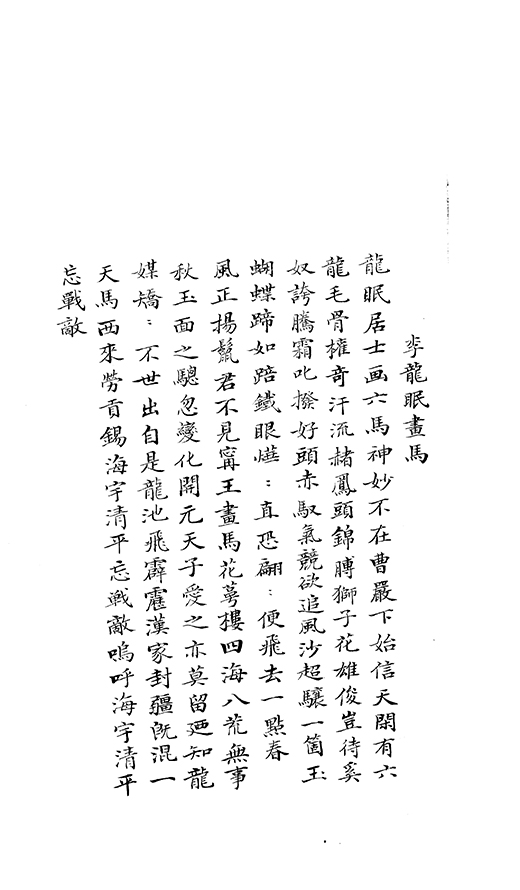 李龍眠畫馬
龍眠居士画六馬神妙不在曹嚴下始信天閑有六
龍毛骨權奇汗流赭鳳頭錦膊獅子花雄俊豈待奚
奴誇騰霜叱撥好頭赤馭氣競欲追風沙超驤一箇玉
蝴蝶蹄如踣鐵眼爗：直恐翩：便飛去一點春
風正揚鬣君不見寗王畫馬花萼樓四海八荒無事
秋玉面之驄忽變化開元天子愛之亦莫留廼知龍
媒矯：不世出自是龍池飛霹靂漢家封疆旣混一
天馬西來勞貢錫海宇清平忘戰敵嗚呼海宇清平
忘戰敵